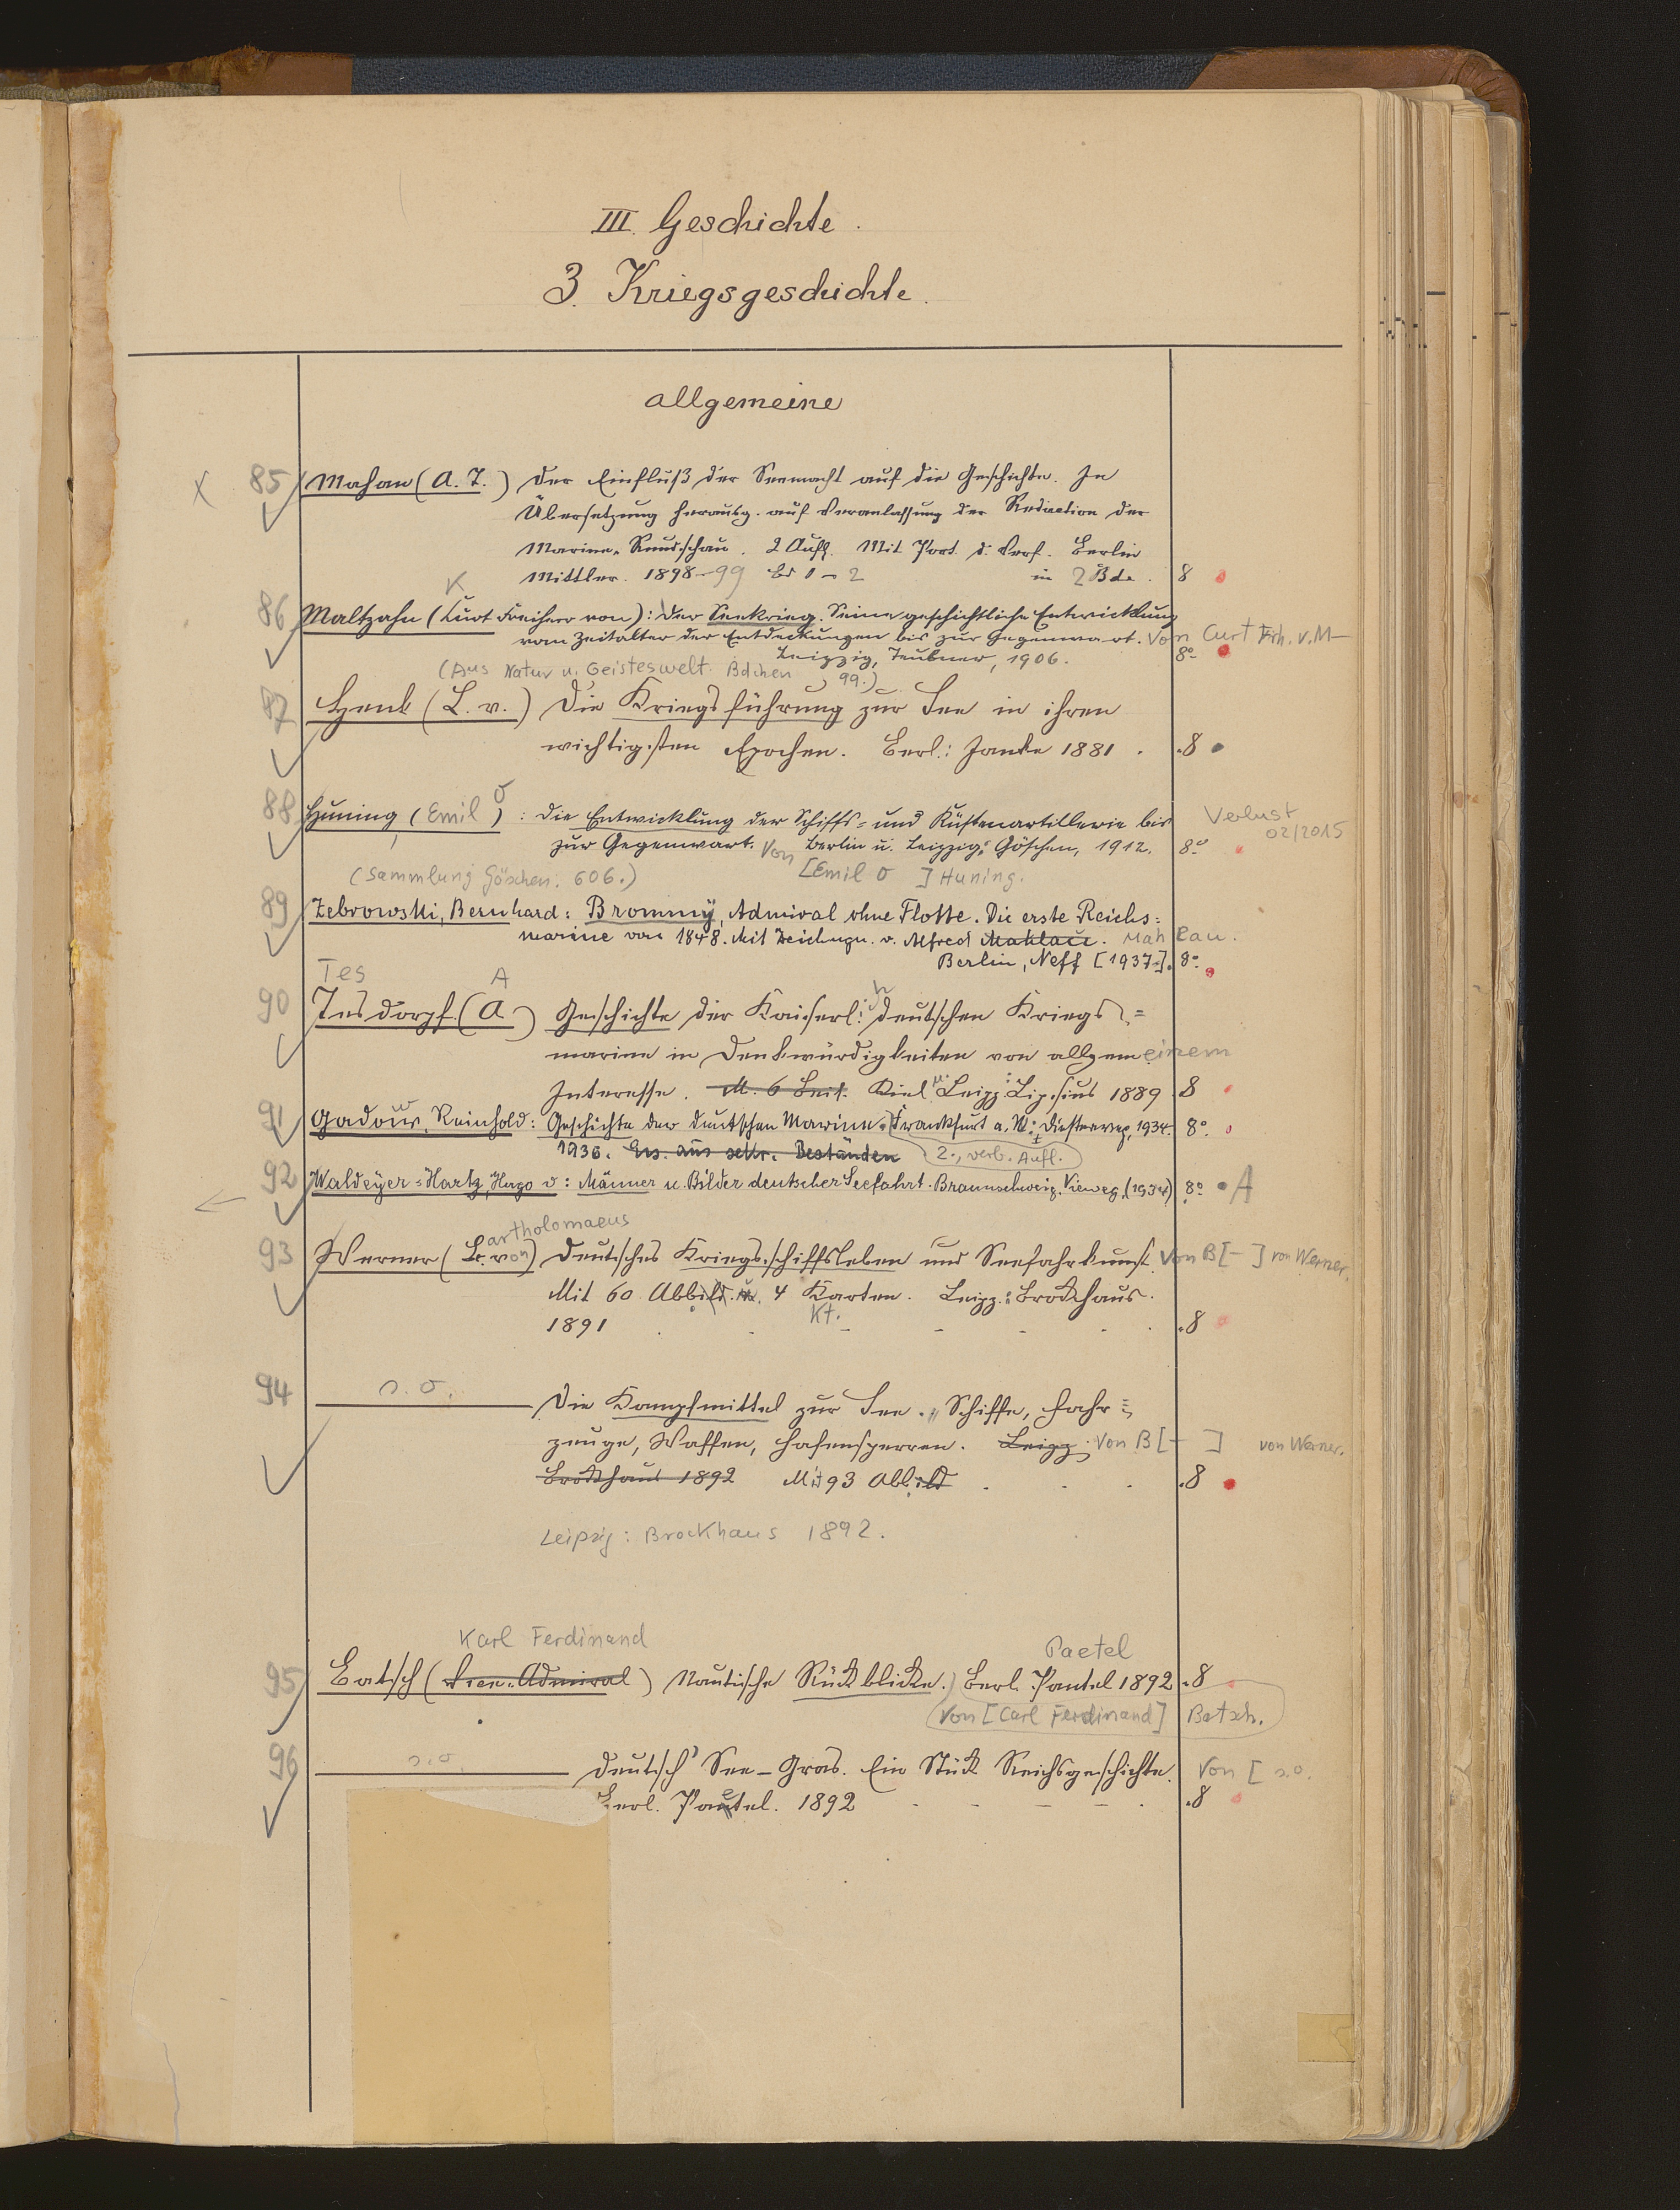 III. Geschichte.
3. Kriegsgeschichte.
allgemeine
85 Mahan (A. T.) Der Einfluß der Seemacht auf die Geschichte. In
Übersetzung herausg. auf Veranlassung der Redaction der
Marine-Rundschau. 2 Aufl. Mit Port. d. Verf. Berlin
Mittler. 1898-99 Bd 1-2 in 2 Bde. 8
K
86 Maltzahn (Curt Freiherr von): Der Seekrieg. Seine geschichtliche Entwicklung
vom Zeitalter der Entdeckungen bis zur Gegenwart. Von Curt Frh. v. M-
Leipzig, Teubner, 1906. 8°
(Aus Natur u. Geisteswelt. Bdchen 99.)
87 Henk (L. v.) Die Kriegsführung zur See in ihren
wichtigsten Epochen. Berl.: Janke 1881. 8
88 Huning (Emil O): Die Entwicklung der Schiffs- und Küstenartillerie bis
Verlust 02/2015
zur Gegenwart. Von Berlin u. Leipzig: Göschen, 1912. 8°
(Sammlung Göschen. 606.) [Emil O ] Huning.
89 Zebrowski, Bernhard: Brommÿ, Admiral ohne Flotte. Die erste Reichs=
marine von 1848. Mit Zeichngn. v. Alfred Mahlau. Mahlau.
Berlin, Neff [1937]. 8°
Tes A
90 Tesdorpf. (A.) Geschichte der Kaiserl. deutschen Kriegs=
marine in Denkwürdigkeiten von allgemeinem
Interesse. M. 6 Beil. Kiel u. Leipz.: Lipsius 1889 8
91 Gadow, Reinhold: Geschichte der deutschen Marine. Frankfurt a. M.: Diesterweg, 1934. 8°
1936. Ers. aus sekr. Beständen 2., verb. Aufl.
92 Waldeÿer-Hartz, Hugo v: Männer u. Bilder deutscher Seefahrt. Braunschweig. Vieweg, (1934) 8° A
artholomaeus
93 Werner (B. von) Deutsches Kriegsschiffsleben und Seefahrkunst. Von B[- ] von Werner.
Mit 60 Abbild. u. 4 Karten. Leipz.: Brockhaus.
Kt.
1891 8
94 s. o. Die Kampfmittel zur See. Schiffe, Fahr=
zeuge, Waffen, Hafensperren. Leipz. Von B[- ] von Werner.
Brockhaus 1892 Mit 93 Abbild 8
Leipzig: Brockhaus 1892.
Karl Ferdinand Paetel
95 Batsch (Vice-Admiral) Nautische Rückblicke. Berl. Paetel 1892 8
Von [Carl Ferdinand] Batsch.
96 s. o. Deutsch' See-Gras. Ein Stück Reichsgeschichte. Von [s.o.
Berl. Paetel. 1892 8